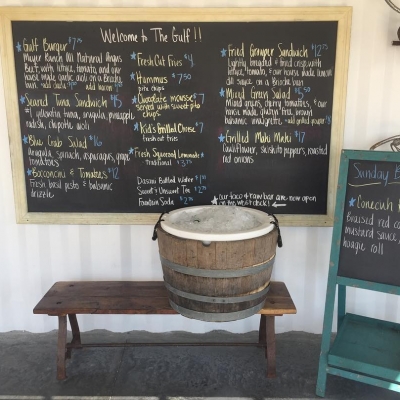 Welcome to The Gulf!!
Gulf Burger $7.75
Meyer Ranch All Natural Angus
Beef with lettuce, tomato, and our
house made garlic aioli on a Brioche
bun
Seared Tuna Sandwich $15
#1 yellowfin tuna, arugula, pineapple
radish, chipotle aioli
Blue Crab Salad $16
Arugula, spinach, asparagus, grape
tomatoes
Bocconcini & Tomatoes $12
Fresh basil pesto & balsamic
drizzle
Fresh Cut Fries $4
Hummus $7.50
pita chips
Chocolate mousse $7
served with sweet pita
chips
Kid's Grilled Cheese $7
fresh cut fries
Fresh Squeezed Lemonade
Traditional $3
Dasani Bottled Water
Sweet & Unsweet Tea $2
Fountain Soda $2
Fried Grouper Sandwich $12.75
Lightly breaded & fried crisp with
lettuce, tomato, & our house made lemon
dill sauce on a Brioche
bun
Mixed Green Salad $5.50
Mixed greens, cherry tomatoes, & our
house made, gluten free brown
balsamic vinaigrette -add grilled grouper
Grilled Mahi Mahi $17
Cauliflower, shishito peppers, roasted
red onions
our taco & raw bar are now open
on the west deck!
Sunday
Conecuh
Braised red c
mustard sauce,
hoagie roll